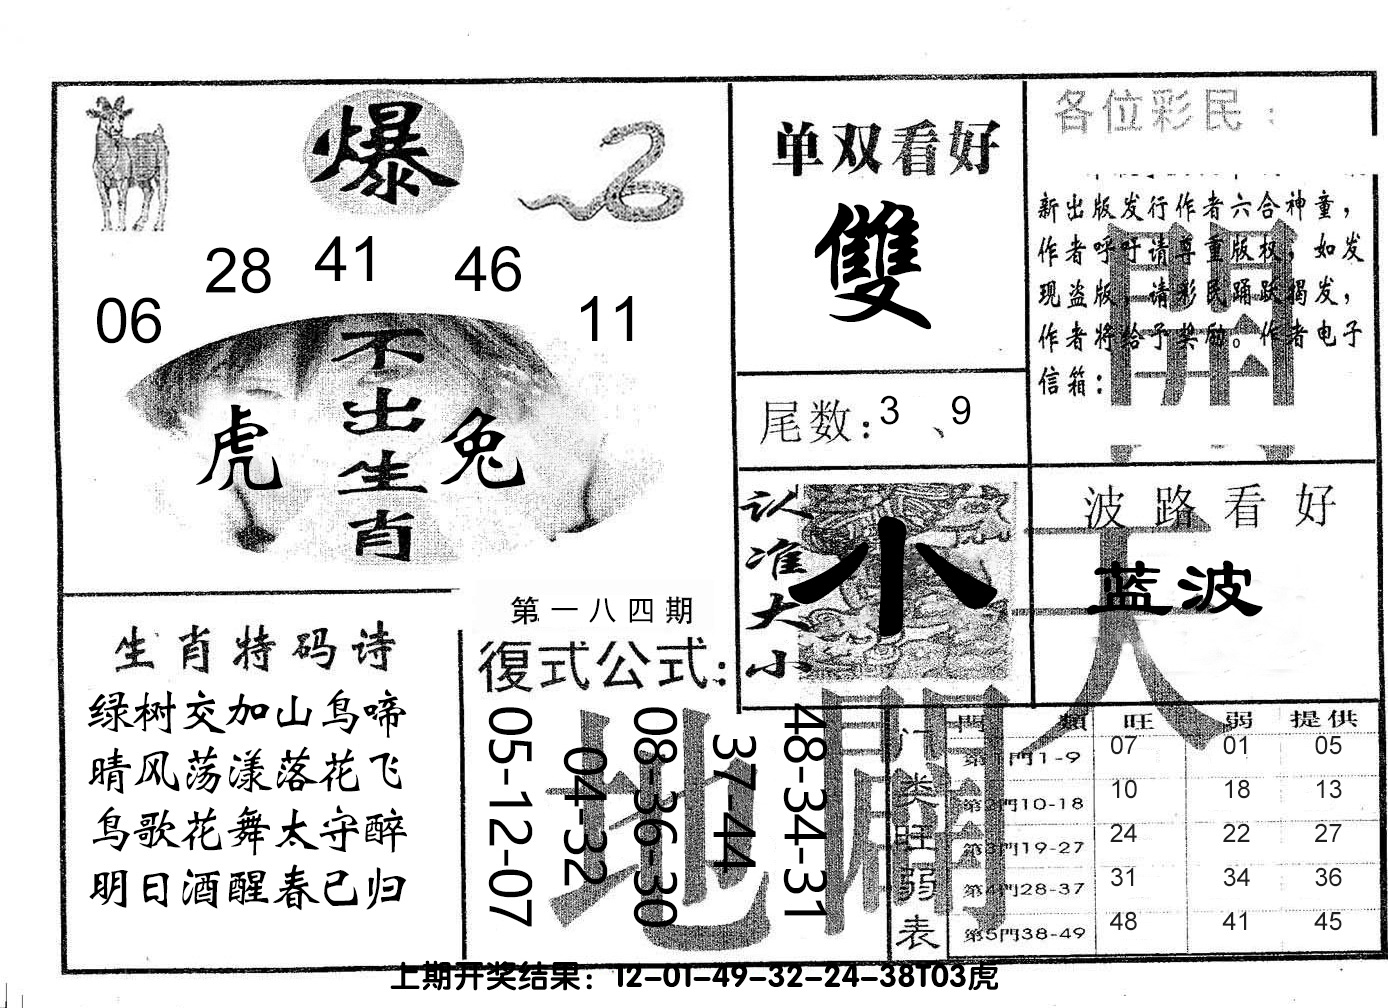 爆
28 41 46
06 11
不出生肖
虎 兔
单双看好
雙
尾数:3、9
各位彩民:
新出版发行作者六合神童,
作者呼吁请尊重版权,如发
现盗版,请彩民踊跃揭发,
作者将给予奖励。作者电子
信箱:
開
认准大小
小
波路看好
蓝波
天
生肖特码诗
绿树交加山鸟啼
晴风荡漾落花飞
鸟歌花舞太守醉
明日酒醒春已归
第一八四期
復式公式:
05-12-07
04-32
08-36-30
37-44
48-34-31
地
门类旺弱表
門類 旺 弱 提供
第1門1-9 07 01 05
第2門10-18 10 18 13
第3門19-27 24 22 27
第4門28-37 31 34 36
第5門38-49 48 41 45
上期开奖结果:12-01-49-32-24-38T03虎